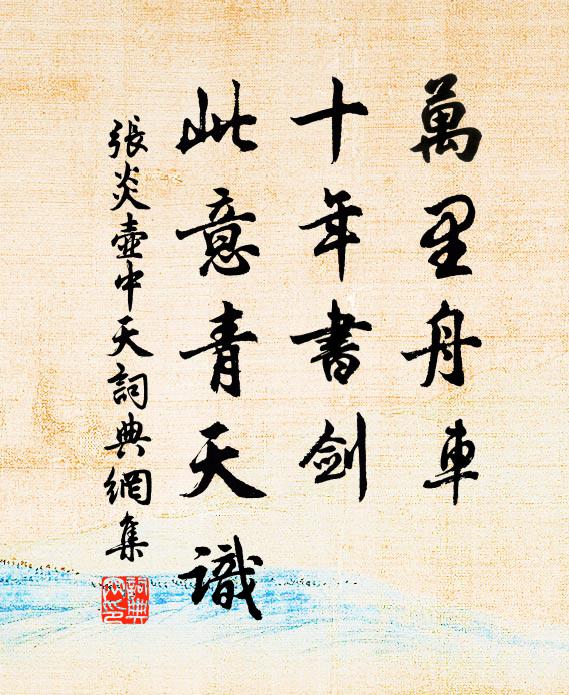 萬里舟車
十年書剑
此意青天識
張炎壺中天詞典網集